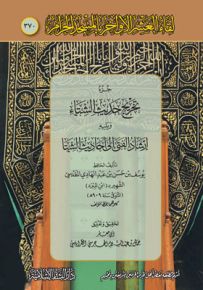 لقاء العشر الأواخر بالمسجد الحرام
٢٧٠
جزء
تخريج حديث الشتاء
ويليه
إرشاد الفتى إلى أحاديث الشتا
تأليف الحافظ
يوسف بن حسن بن عبد الهادي المقدسي
الشهير بـ ابن المبرد
المتوفى سنة ٩٠٩هـ
تحقيق وتعليق
دار البشائر الإسلامية